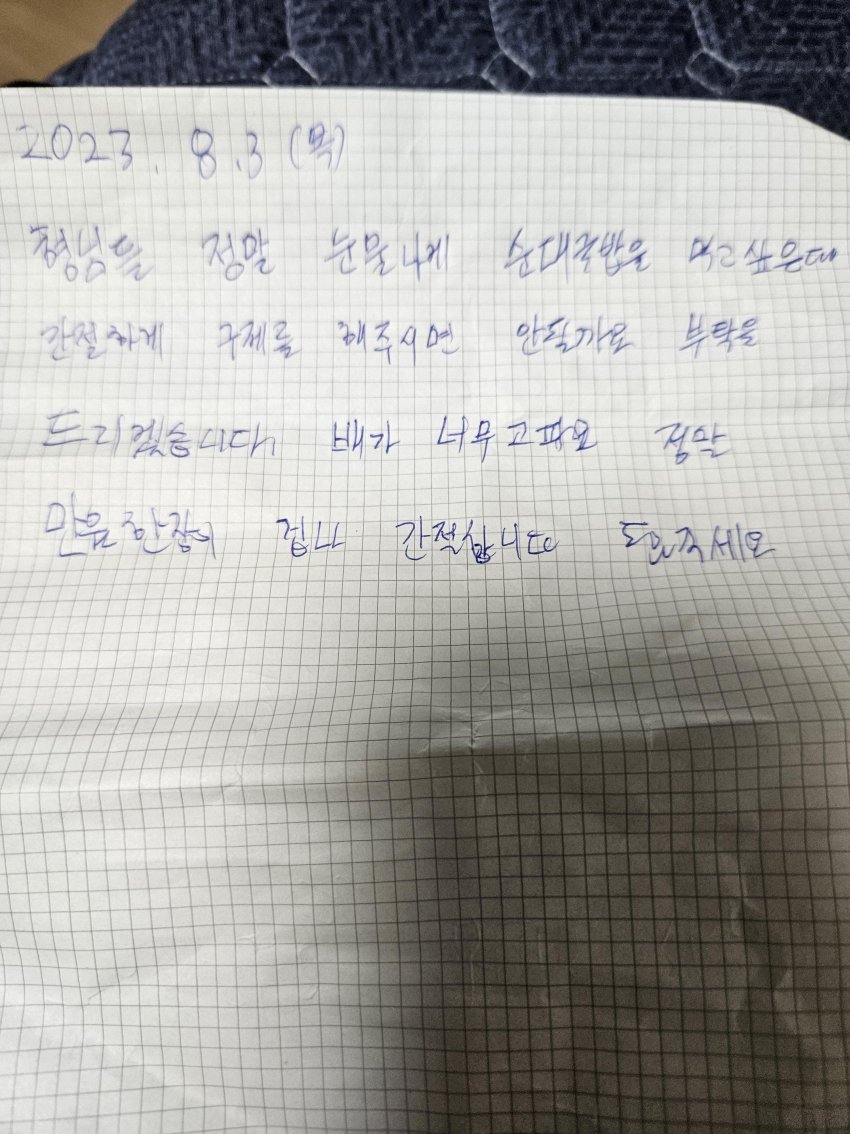 2023. 8.3 (목)
형님들 정말 눈물나게 순대국밥을 먹고싶은데
간절하게 구제를 해주시면 안될까요 부탁을
드리겠습니다 배가 너무고파요 정말
만원한장이 겁나 간절합니다 도와주세요